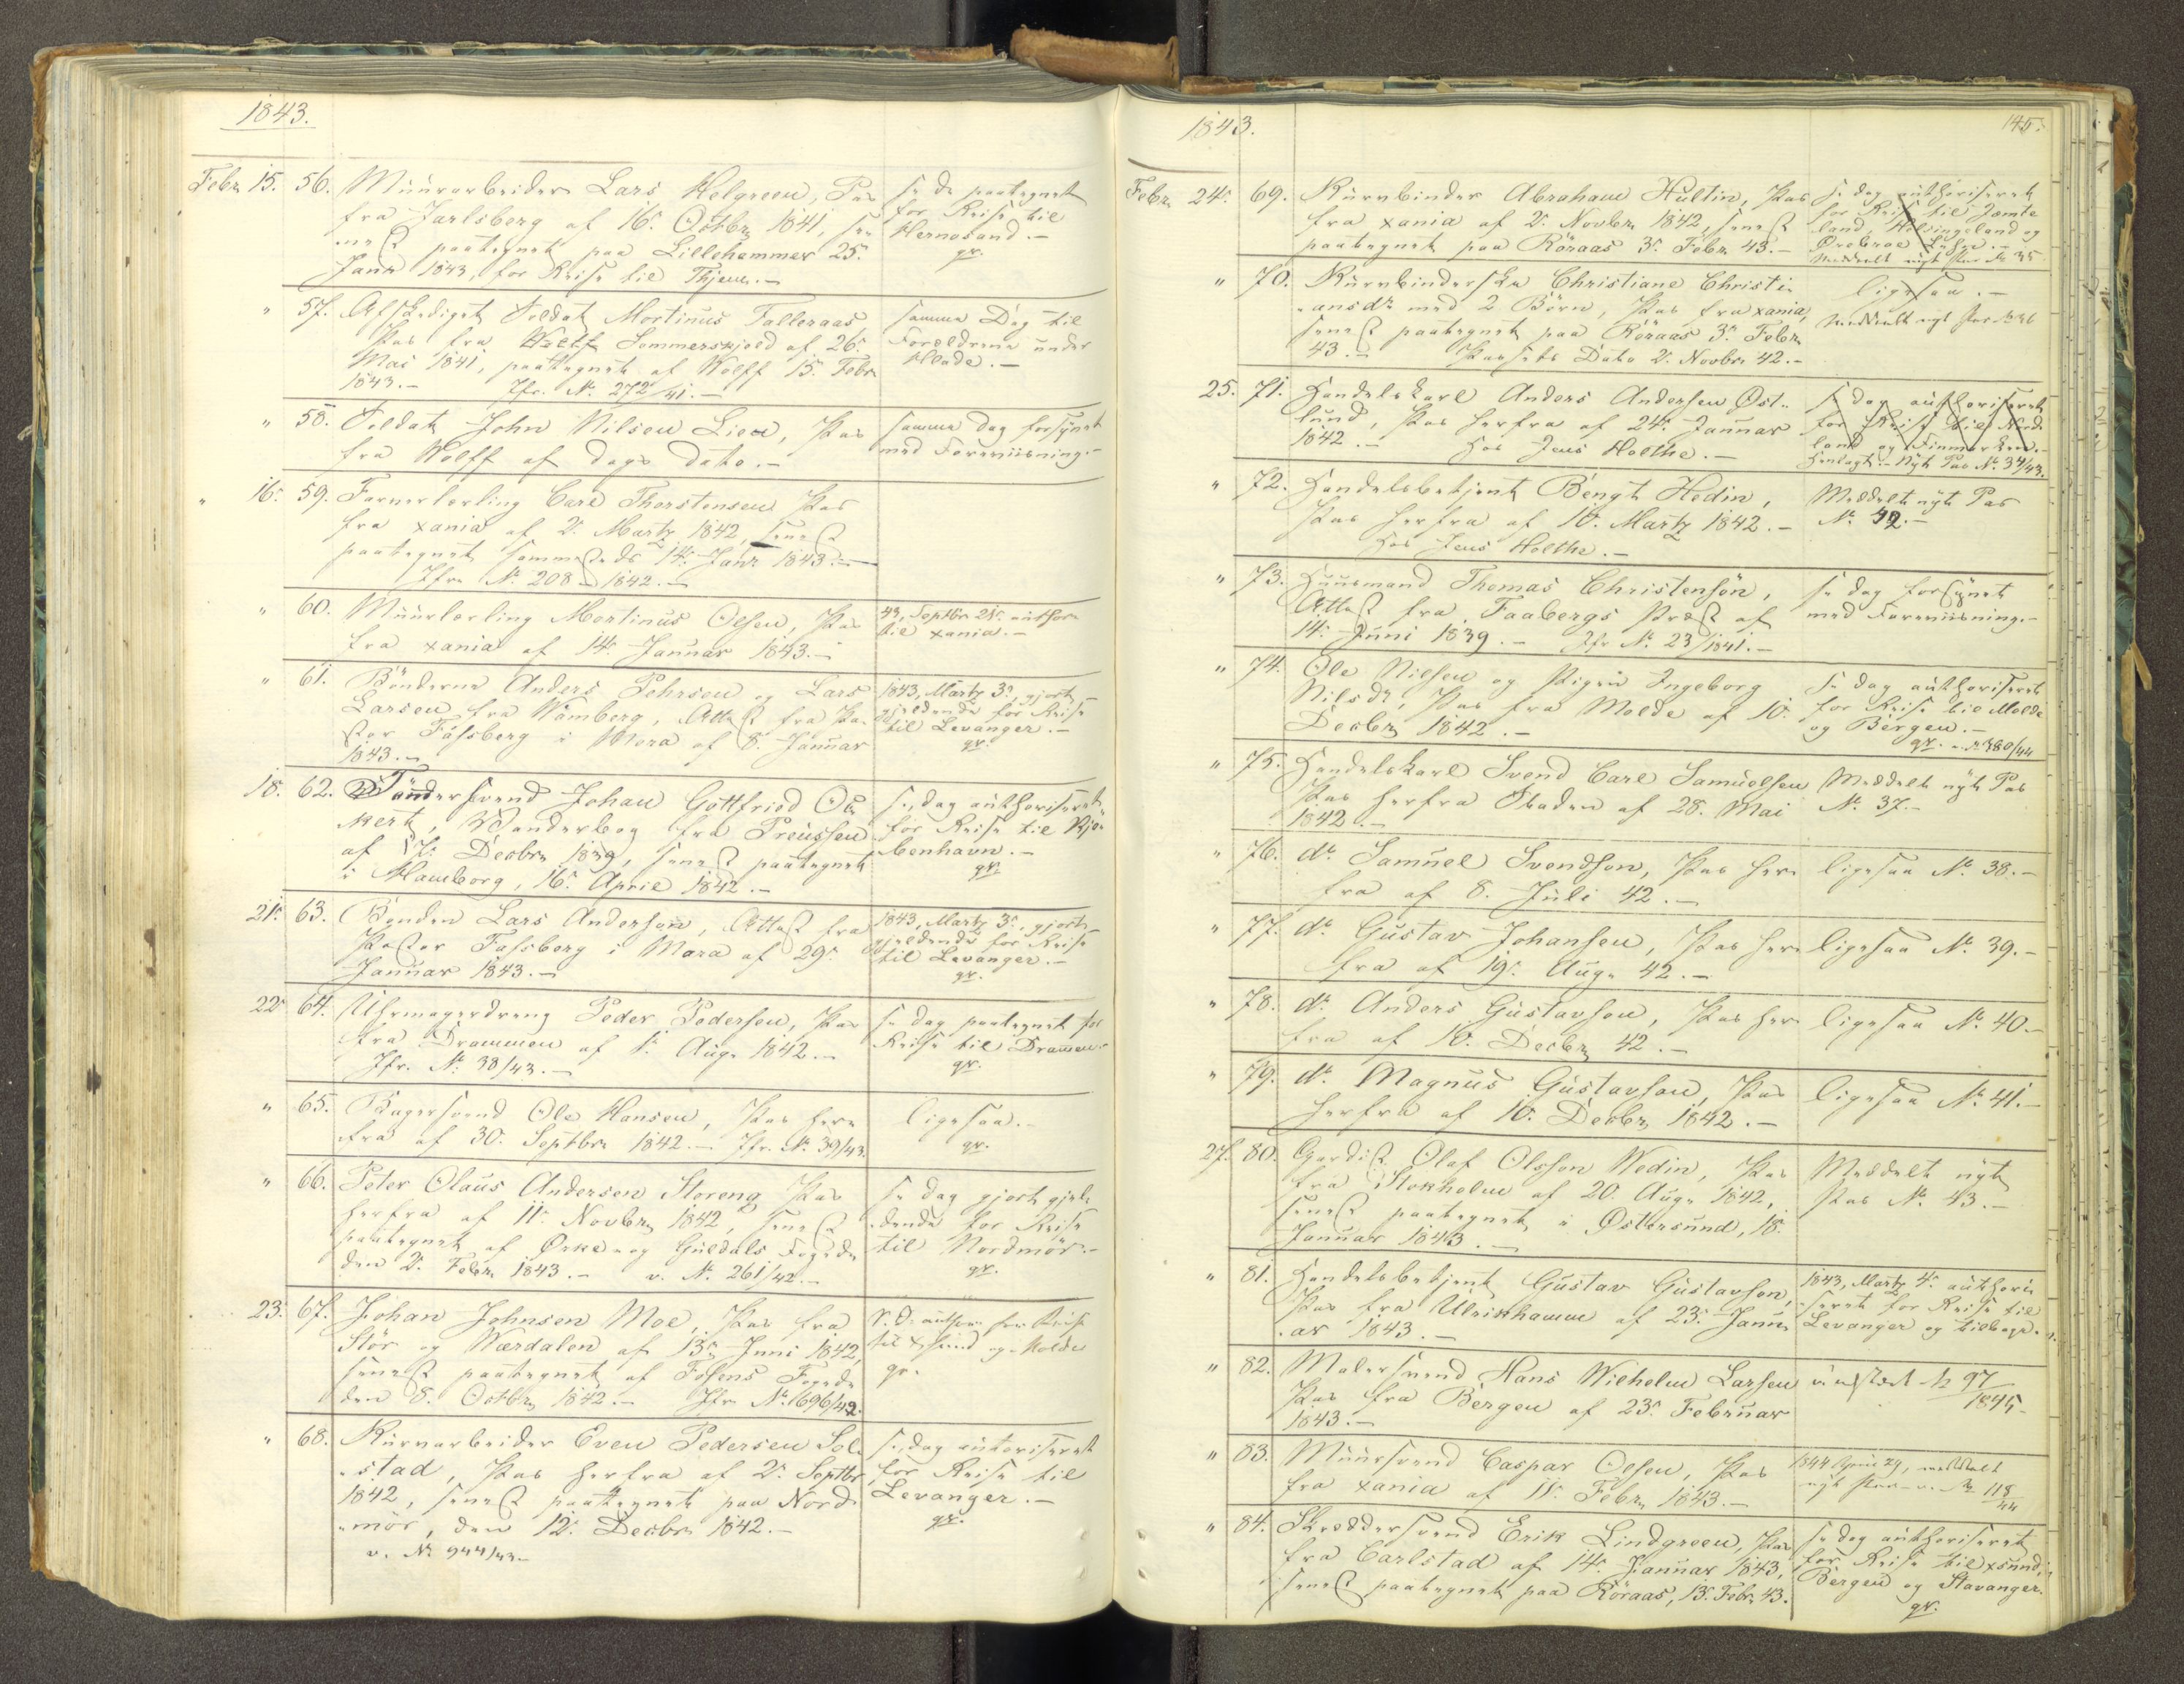 1843.
Febr. 15. 56. Muurarbeider Lars Helgreen, Pas
fra Jarlsberg af 16. Octbr. 1841, se-
nest paategnet paa Lillehammer 25.
Janr 1843, for Reise til Thjem.-
s. D. paategnet
for Reise til
Hernøsand.-
qv.
" 57. Afskediget Soldat Mortinus Talleraas
Pas fra Sommerskjold af 26.
Mai 1841, paategnet af Wolff 15. Febr.
1843.- Jfr. No. 272/41.-
samme Dag til
Forældrene under
Hlade.-
" 58. Soldat John Nilsen Lien, Pas
fra Wolff af dags dato.-
samme Dag forsynet
med Foreviisning.-
" 16. 59. Farverlærling Carl Thorstensen Pas
fra Xania af 2. Martz 1842, senest
paategnet sammesteds 14. Janr. 1843.-
Jfr. No. 208 - 1842.-
" 60. Muurlærling Mortinus Olsen, Pas
fra Xania af 14. Januar 1843.-
43, Septbr. 21. author.
til Xania.-
" 61. Bönderne Anders Pehrsen og Lars
Larsen fra Wåmberg, Attest fra Pa-
stor Fåhsberg i Mora af 8. Januar
1843.-
1843, Martz 3., gjort
gjeldende for Reise
til Levanger.-
qv.
18. 62. Töndersvend Johan Gottfried
Wanderbog fra Preussen
af 17. Decbr. 1839, senest paategnet
i Hamborg, 16. April 1842.-
s. dag authoriseret
for Reise til Kjø-
benhavn.-
qv.
21. 63. Bonden Lars Andersøn, Attest fra
Pastor Fahsberg i Mora af 29.
Januar 1843.-
1843, Martz 3., gjort
gjeldende for Reise
til Levanger.-
qv.
22. 64. Uhrmagerdreng Peder Pedersen, Pas
fra Drammen af 1. Aug. 1842.-
Jfr. No. 38/43.-
s. dag paategnet for
Reise til Dramen.-
qv.
" 65. Bagersvend Ole Hansen, Pas her-
fra af 30. Septbr. 1842.- Jfr. No. 39/43.
ligesaa.-
qv.
" 66. Peter Olaus Andersen Storeng Pas
herfra af 11. Novbr. 1842, senest
paategnet af Orke- og Guldals Fogede
den 2. Febr. 1843.- v. No. 261/42.-
s. dag gjort gjel-
dende for Reise
til Nordmör.-
qv.
23. 67. Johan Johnsen Moe, Pas fra
Stör og Værdalen af 13. Juni 1842,
senest paategnet af Fosens Fogede
den 8. Octbr. 1842.- Jfr. No. 696/42.
S. D. author. for Reise
til Xsund og Molde
qv.
" 68. Kurvarbeider Even Pedersen Sol-
stad, Pas herfra af 2. Septbr.
1842, senest paategnet paa Nord-
mör, den 12. Decbr. 1842.-
v. No 944/43.-
s. dag autoriseret
for Reise til
Levanger.-
qv.
1843.
145.
Febr. 24. 69. Kurvbinder Abraham Hultin, Pas
fra Xania af 2. Novbr. 1842, senest
paategnet paa Röraas 3. Febr. 43.-
s. dag authoriseret
for Reise til Jemte
land, Helsingeland og
Ørebroe Lehn.-
Meddeelt nyt Pas No 35
" 70. Kurvbinderske Christiane Christi-
ansdr. med 2 Börn, Pas fra Xania,
senest paategnet paa Röraas 3. Febr.
43.- Passets Dato 2. Novbr. 42.-
ligesaa.-
Meddeelt nyt Pas No 36
25. 71. Handelskarl Anders Andersen Öst-
lund, Pas herfra af 24. Januar
1842.- Hos Jens Holthe.-
s. dag authoriseret
for Reise til Nord-
land og Finmarken.-
Henlagt.- Nyt Pas No. 34/43.
" 72. Handelsbetjent Bengt Hedin,
Pas herfra af 10. Martz 1842.-
Hos Jens Holthe.-
Meddelt nyt Pas
No. 42.-
" 73. Huusmand Thomas Christensön,
Attest fra Faabergs Præst af
14. Juni 1839.- Jfr No. 23/1841.-
s. dag forsynet
med Foreviisning.-
" 74. Ole Nilsen og Pigen Ingeborg
Nilsdr, Pas fra Molde af 10.
Decbr. 1842.-
s. dag authoriseret
for Reise til Molde
og Bergen.-
qv. v. No 380/44
" 75. Handelskarl Svend Carl Samuelsen
Pas herfra Staden af 28. Mai
1842.-
Meddelt nyt Pas
No. 37.-
" 76. do. Samuel Svendson, Pas her-
fra af 8. Juli 42.-
ligesaa No. 38.-
" 77. do. Gustav Johansen, Pas her-
fra af 19. Aug. 42.-
ligesaa No. 39.-
" 78. do. Anders Gustavson, Pas her-
fra af 10. Decbr. 42.-
ligesaa No. 40.-
" 79. do. Magnus Gustavson, Pas
herfra af 10. Decbr. 1842.-
ligesaa No. 41.-
27. 80. Gardist Olof Olsson Wedin, Pas
fra Stokholm af 20. Aug. 1842,
senest paategnet i Østersund, 18.
Januar 1843.-
Meddelt nyt
Pas No. 43.-
" 81. Handelsbetjent Gustav Gustavson,
Pas fra Ulrikhamn af 23. Janu-
ar 1843.-
1843, Martz 4. authori-
seret for Reise til
Levanger og tilbage.-
" 82. Malersvend Hans Wilhelm Larsen
Pas fra Bergen af 23. Februar
1843.-
No 97
1845.
" 83. Muursvend Caspar Olsen, Pas
fra Xania af 11. Febr. 1843.-
1844 April 29, meddeelt
nyt Pas v. No 118
44
" 84. Skreddersvend Erik Lindgreen, Pas
fra Carlstad af 14. Januar 1843,
senest paategnet paa Röraas, 13. Febr. 43.
s. dag authoriseret
for Reise til Xsund,
Bergen og Stavanger.
qv.